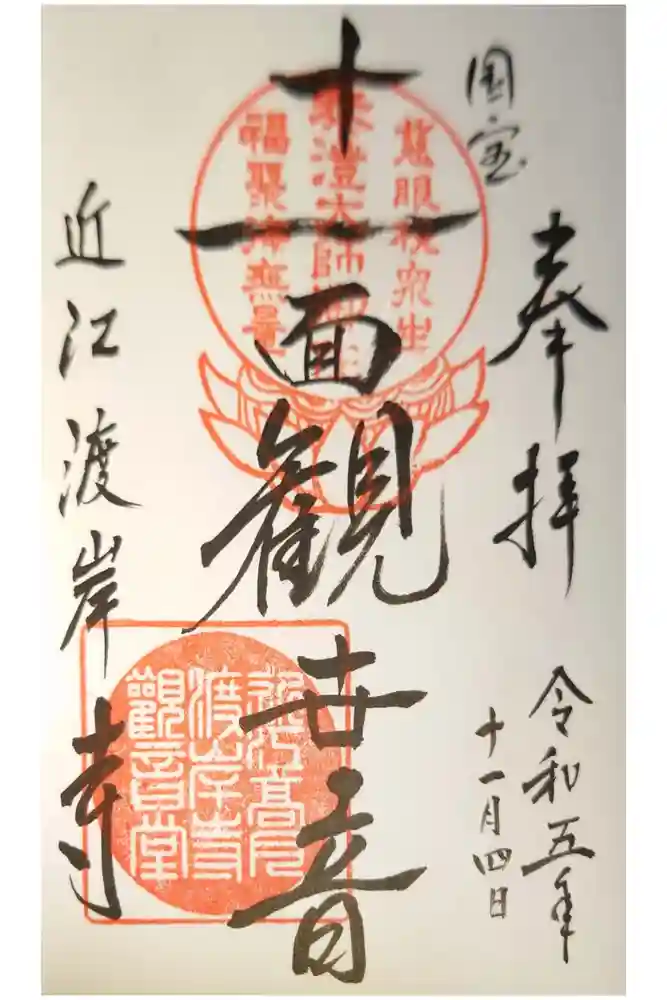 奉拝
令和五年
国宝
十一月四日
十一面観世音
近江渡岸寺
慈眼視衆生
泰澄大師
福聚海無量
近江髙月
渡岸寺
觀音堂